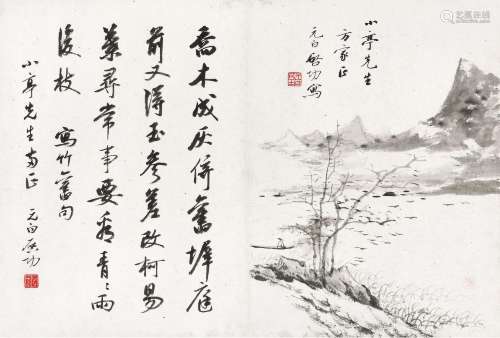 小亭先生
方家正
元白啓功寫
喬木成灰併舊墀庭
前又得玉參差改柯易
葉尋常事要看青〻雨
後枝 寫竹舊句
小亭先生兩正 元白啓功